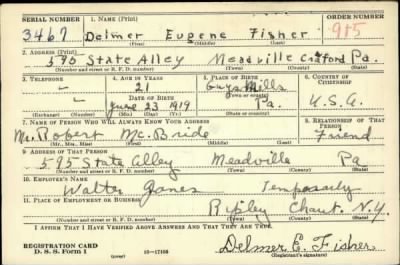 SERIAL NUMBER 1. NAME (Print) ORDER NUMBER
3467 Delmer Eugene Fisher 985
(First) (Middle) (Last)
2. ADDRESS (Print)
595 State Alley Meadville Crawford Pa.
(Number and street or R. F. D. number) (Town) (County) (State)
3. TELEPHONE 4. AGE IN YEARS 5. PLACE OF BIRTH 6. COUNTRY OF CITIZENSHIP
— 21 Guys Mills
(Town or county)
DATE OF BIRTH
— June 23 1919 Pa. U.S.A.
(Exchange) (Number) (Mo.) (Day) (Yr.) (State or country)
7. NAME OF PERSON WHO WILL ALWAYS KNOW YOUR ADDRESS 8. RELATIONSHIP OF THAT PERSON
Mr. Robert Mc. Bride Friend
(Mr., Mrs., Miss) (First) (Middle) (Last)
9. ADDRESS OF THAT PERSON
595 State Alley Meadville Pa
(Number and street or R. F. D. number) (Town) (County) (State)
10. EMPLOYER'S NAME
Walter Jones Temporarily
11. PLACE OF EMPLOYMENT OR BUSINESS
Ripley Chaut. N.Y.
(Number and street or R. F. D. number) (Town) (County) (State)
I AFFIRM THAT I HAVE VERIFIED ABOVE ANSWERS AND THAT THEY ARE TRUE.
REGISTRATION CARD
D. S. S. Form 1 (over) 16—17105 Delmer E. Fisher
(Registrant's signature)